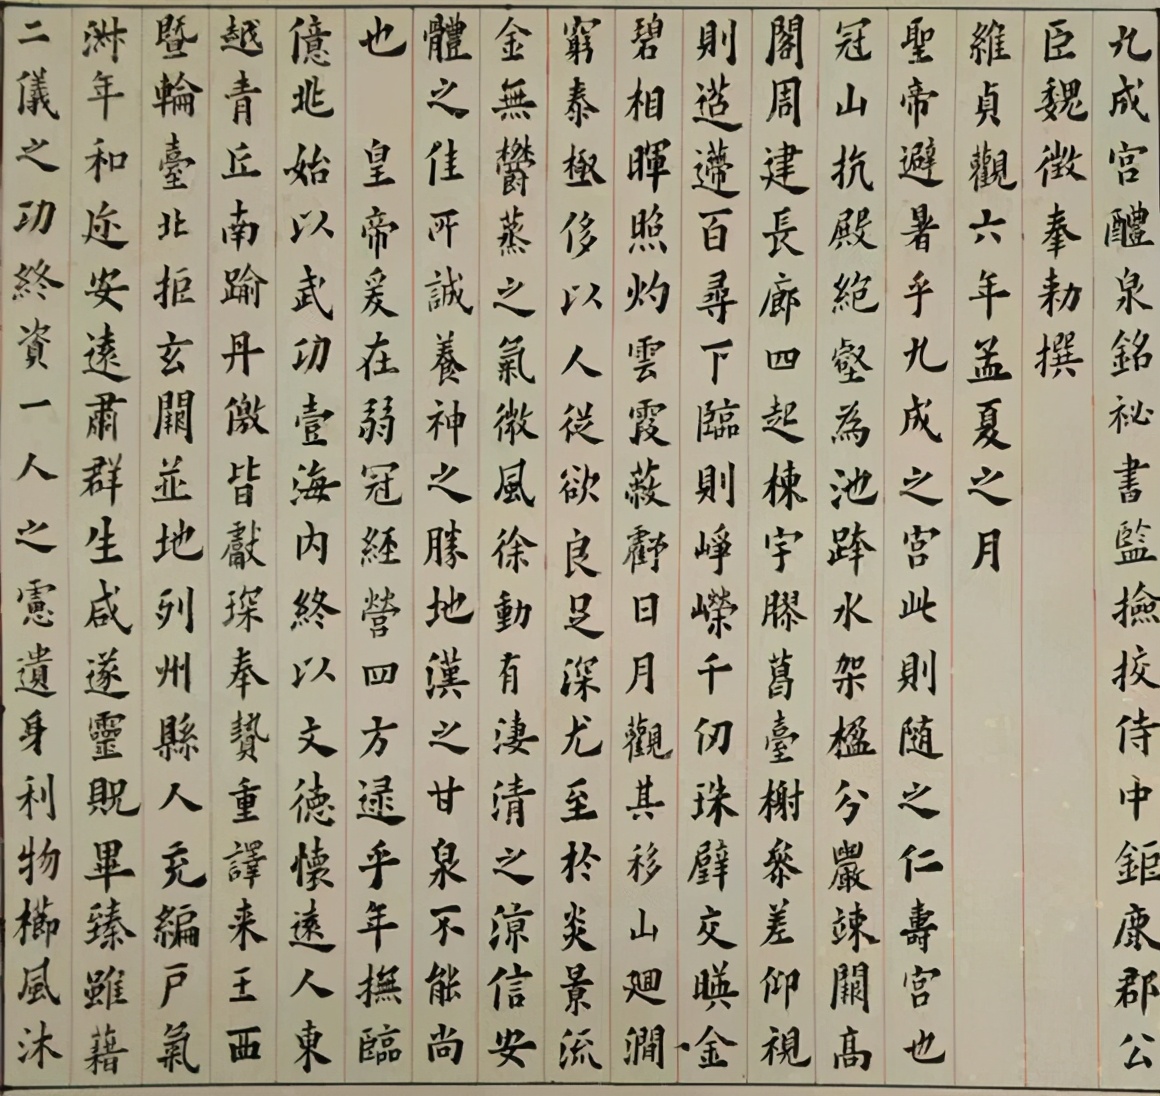 九成宮醴泉銘祕書監撿挍侍中鉅鹿郡公
臣魏徵奉勅撰
維貞觀六年孟夏之月
聖帝避暑乎九成之宮此則随之仁壽宮也
冠山抗殿絕壑為池跨水架楹分巖竦闕高
閣周建長廊四起棟宇膠葛臺榭參差仰視
則迢遰百尋下臨則崢嶸千仞珠璧交暎金
碧相暉照灼雲霞蔽虧日月觀其移山廻澗
窮泰極侈以人從欲良足深尤至於炎景流
金無欝蒸之氣微風徐動有淒清之涼信安
體之佳所誠養神之勝地漢之甘泉不能尚
也　皇帝爰在弱冠經營四方逯乎年撫臨
億兆始以武功壹海內終以文德懷遠人東
越青丘南踰丹儌皆獻琛奉贄重譯来王西
暨輪臺北拒玄闕並地列州縣人充編戶氣
淋年和迩安遠肅群生咸遂靈貺畢臻雖藉
二儀之功終資一人之憲遺身利物櫛風沐